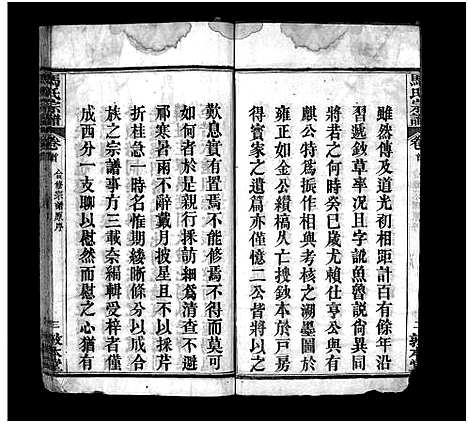 馬氏宗譜
卷首
雖然傳及道光初相距計百有餘年沿
習遞鈔草率況且字訛魚魯說尙同異
將若之何時癸巳歲尤賴仕亨公與有
麒公特爲振作相與考核之溯墨圖於
雍正如金公績槁久亡搜鈔本於戸房
得賓家之遺篇亦僅憶二公皆將以之
歎息賫有置焉不能修焉不得而莫可
如何者於是親行採訪細爲清查不避
祁寒暑雨不辭戴月披星且不以採芹
折桂急一時名惟期縷晰條分以成合
族之宗譜事方三載奈編輯受梓者僅
成西分一支聊以慰然而慰之心猶有
馬氏宗譜
卷首
合修宗譜原序
三
敦本堂